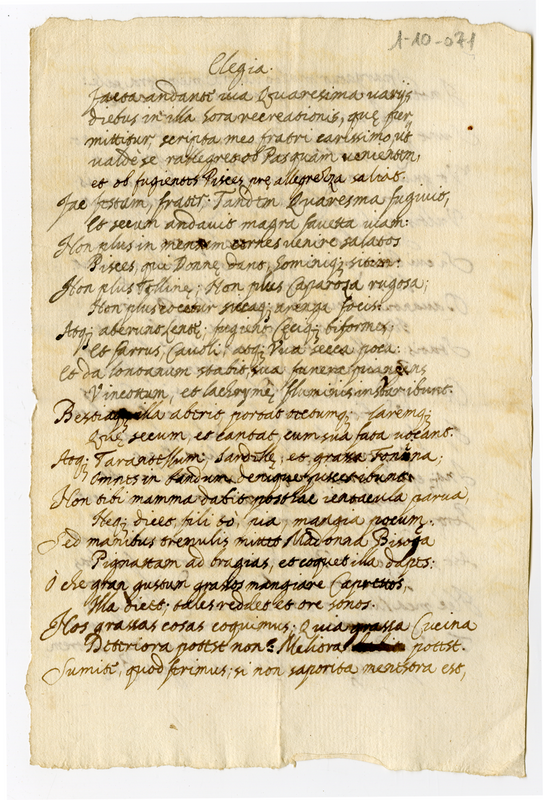 1-10-071
Elegia.
Facta andante uia Quaresima uarijs
diebus in illa hora recreationis, quę per
mittitur, scripta meo fratri carissimo, ut
ualde se rallegret ob Pasquam uenientem,
et ob fugientes Pisces prę allegrezza saltet.
Fac festam, frater; Tandem Quaresima fugiuit,
Et secum andauit magra sauetta uiam:
Non plus in mensam uenire salatos
Pisces, qui Donnę dant, Dominisq; sitem.
Non plus Non plus Caparosa rugosa;
Non plus cocetur siccaq; arenga focis.
Atq; aberunt lente; fugient Ceciq; biformes,
Et farrus, Cauoli, atq; Vua secca poca.
Et da lontanum stabit sua funera
Vincottum, et lachrymę fluminis instar ibunt.
Bestia illa aberit, portat tecumq; Laremq;
Quę secum, et cantat, cum sua fata uocant.
Atq; Tarantellum, Sardellę, et grassa tonina;
Omnes in tandem denique
Non tibi mamma dabit posthac ientacula parua,
Neq; dicet, fili to, uia mangia pocum.
Sed manibus tremulis mittet Madonna Bisoga
Pignattam ad bragias, et coquet illa dapes.
O che gran gustum grassos mangiare Caprettos,
Illa dicet, tales reddet et ore sonos.
Nos grassas cosas coquimus; Quia grassa Cucina
Deteriora potest non: Meliora potest.
Sumite, quod ferimus; si non saporita menestra est,